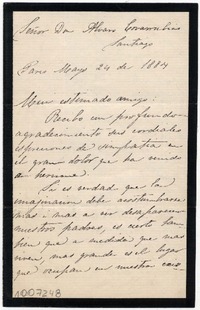 Señor Dn Alvaro Covarrubias
Santiago
Paris Mayo 24 de 1884
Mui estimado amigo:
Recibo con profundo
agradecimiento sus cordiales
espresiones de simpatia en
el gran dolor que ha venido
a
Si es verdad que la
imajinacion debe acostumbrarse
mas i mas a ver desaparecer
nuestros padres, es cierto tam
bien que a medida que mas
viven, mas grande es el lugar
que ocupan en nuestro cora-
1007248